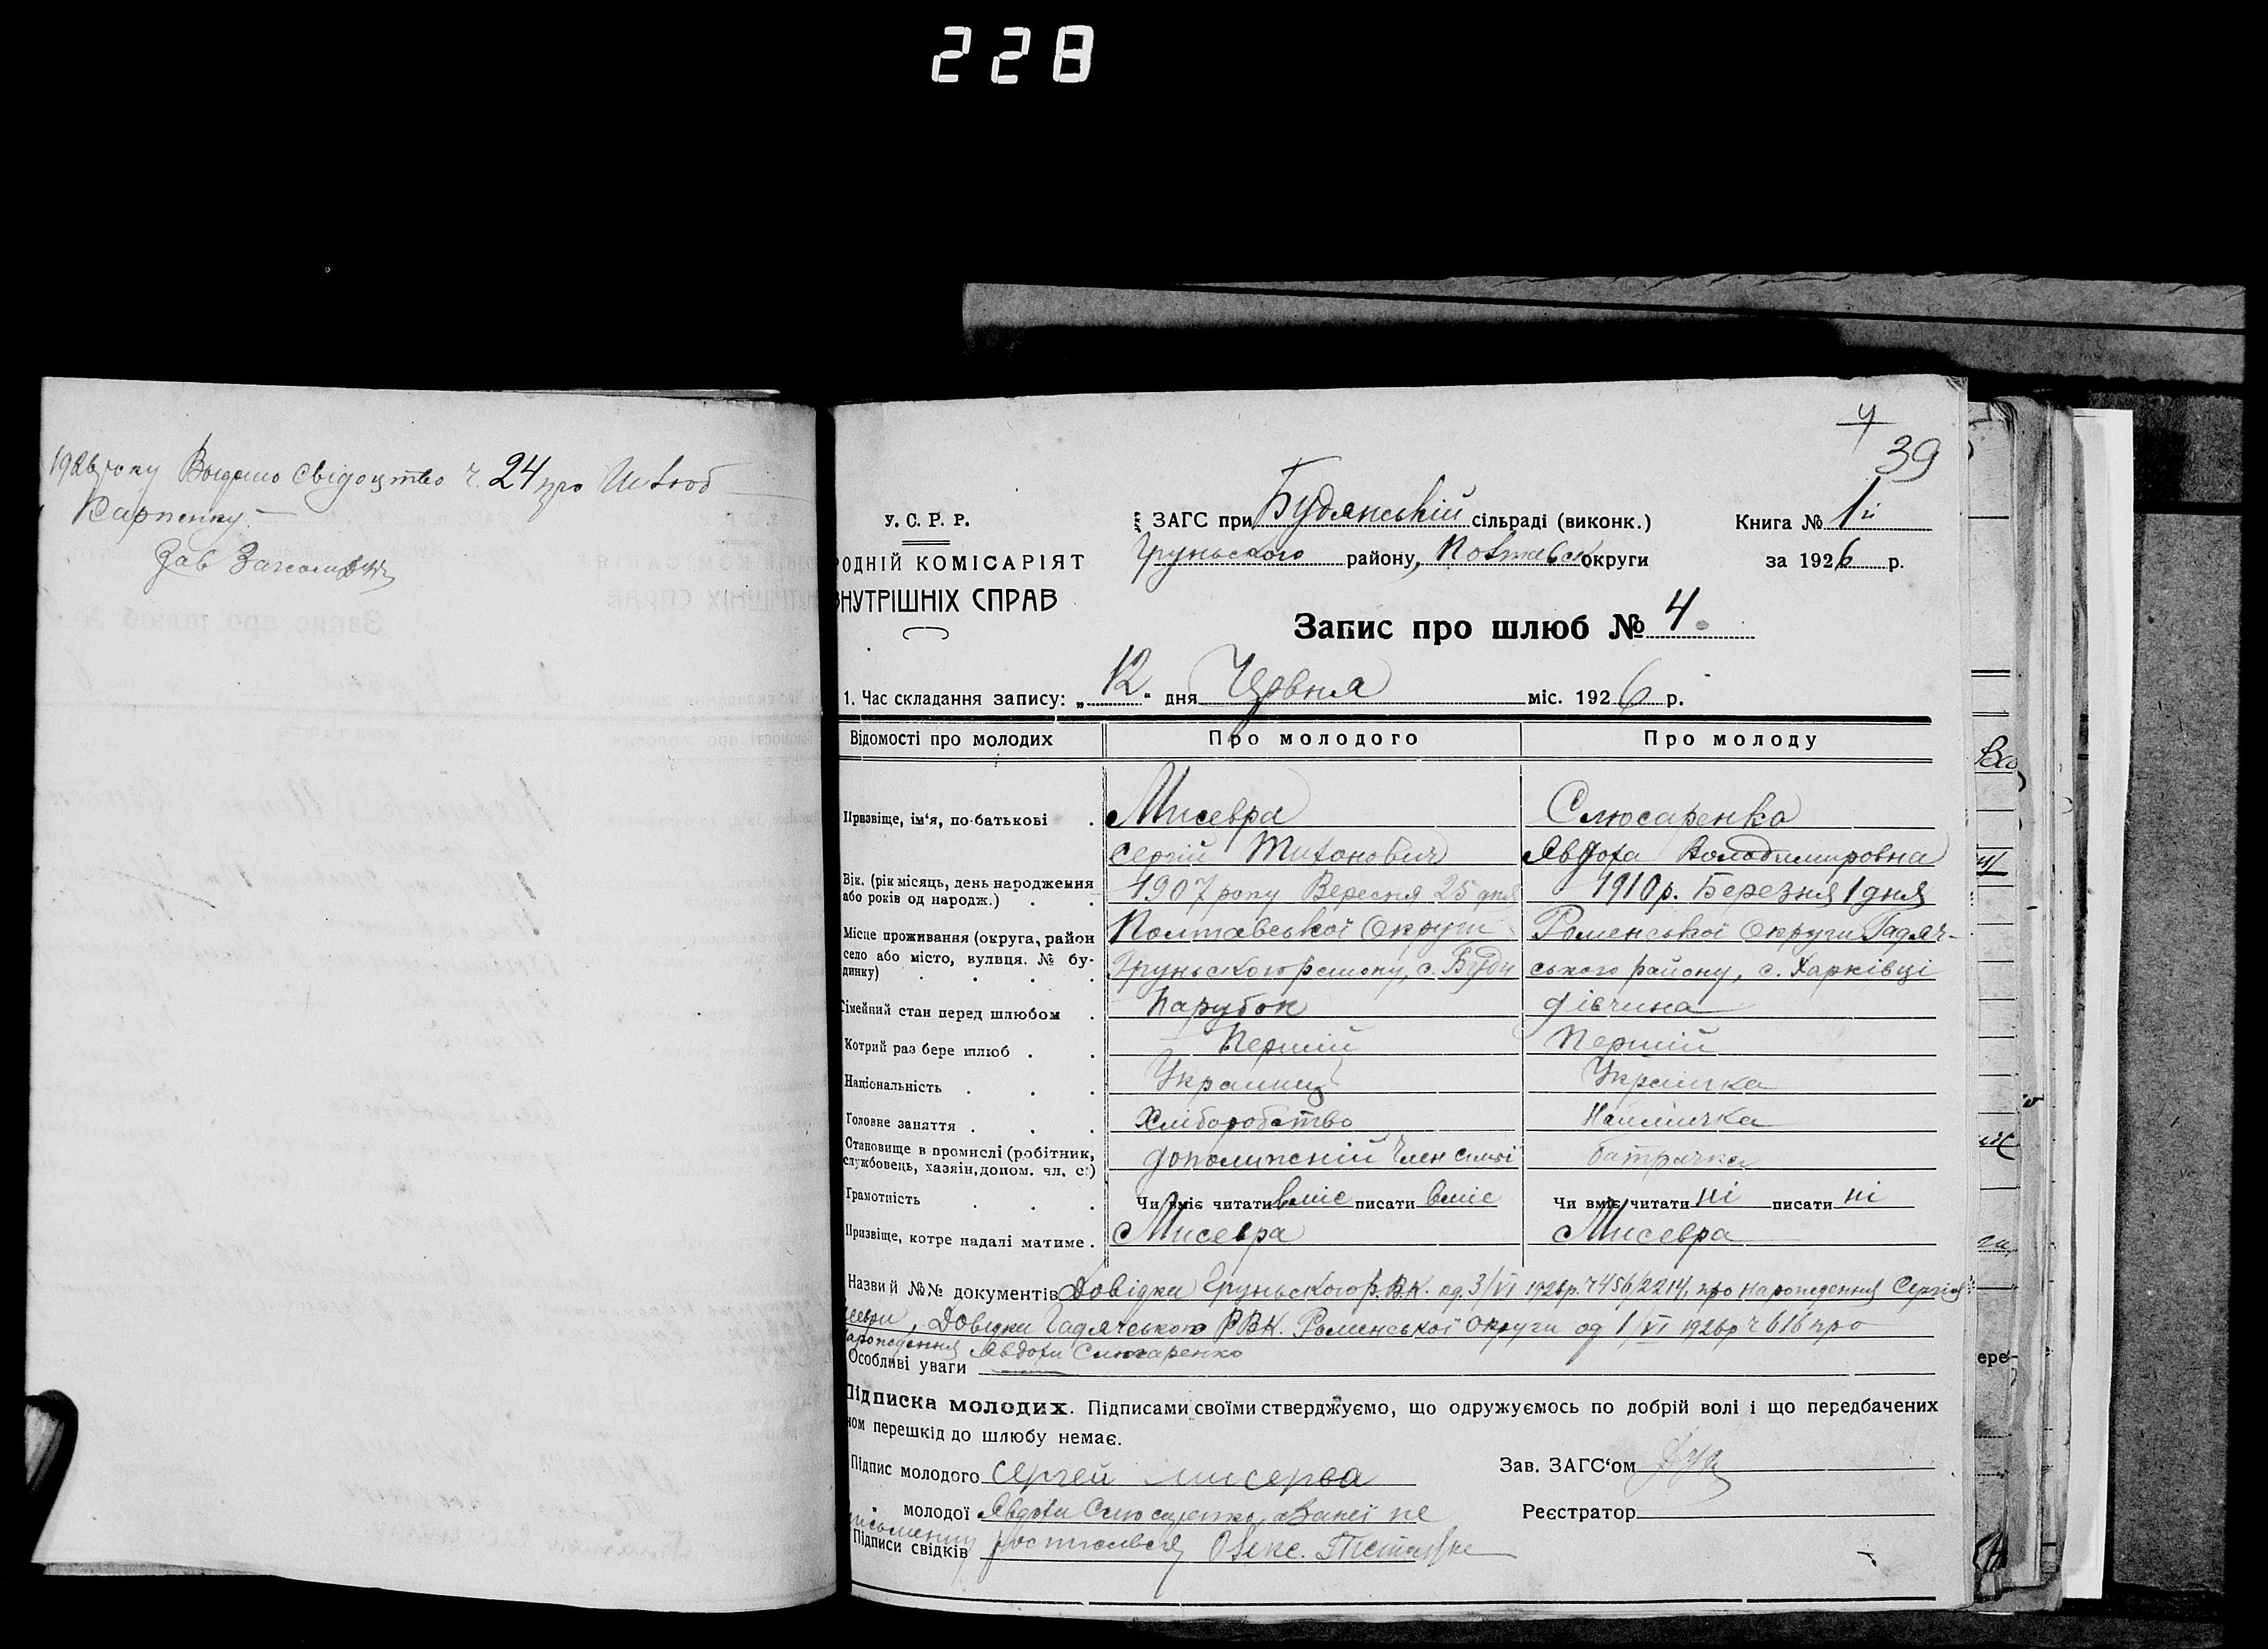 228
1926 року Видано свідоцтво ч. 24 про Шлюб
Карпенку.
Зав Загсом
4
39
У. С. Р. Р.
РОДНІЙ КОМІСАРІЯТ
ВНУТРІШНІХ СПРАВ
ЗАГС при Будянській сільраді (виконк.)
Грунського району, Полтавськ округи
Книга № 1й
за 1926 р.
Запис про шлюб № 4.
1. Час складання запису: „12" дня Червня міс. 1926 р.
Відомості про молодих Про молодого Про молоду
Призвіще, ім'я, по-батькові . Мисевра Слюсаренко
Сергій Тихонович Явдоха Володимировна
Вік. (рік місяць, день народження 1907 року Вересня 25 дня 1910 р. Березня 1 дня
або років од народж.) . .
Місце проживання (округа, район Полтавської Округи Роменської Округи Гадяч-
село або місто, вулиця. № бу- Груньского району, с. Буди ського району, с. Харківці
динку) . . . .
Сімейний стан перед шлюбом . Парубок дівчина
Котрий раз бере шлюб . . Перший Перший
Національність . . . Українець Українка
Головне заняття . . . Хліборобство Наймичка
Становище в промислі (робітник, допоміжний Член сімї батрачка
службовець, хазяін, допом. чл. с.)
Грамотність . . . Чи вміє читати вміє писати вміє Чи вміє читати ні писати ні
Призвіще, котре надалі матиме . Мисевра Мисевра
Назви й №№ документів Довідка Груньского Р.В.К. од 3/VI 1926р. ч 456/2214, про народження Сергія
севри, Довідки Гадячського РВК. Роменської Округи од 1/VI 1926р ч 616 про
народження Явдохи Слюсаренко
Особливі уваги
Підписка молодих. Підписами своїми стверджуємо, що одружуємось по добрій волі і що передбачених
ном перешкід до шлюбу немає.
Підпис молодого Сергей мисерва
Зав. ЗАГС'ом
„ молодої Явдоха Слюсаренко, а за неї не
Реєстратор
письменну росписався Олекс.
Підписи свідків